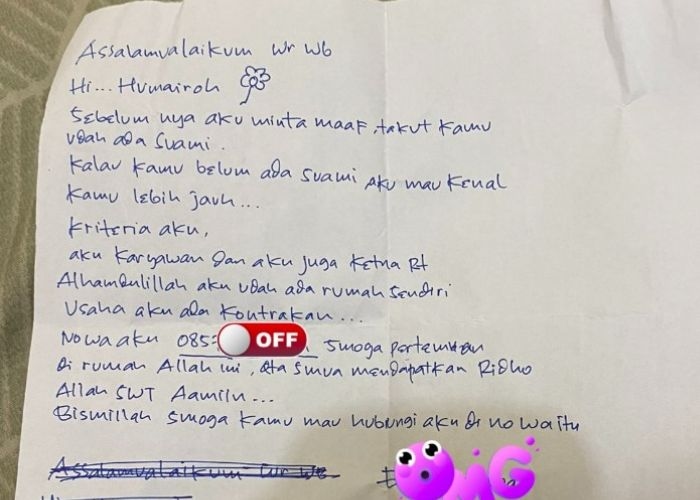 Assalamualaikum wr wb
Hi... Humairoh
Sebelum nya aku minta maaf, takut kamu
udah ada suami.
Kalau kamu belum ada suami aku mau kenal
kamu lebih jauh...
Kriteria aku,
aku karyawan dan aku juga ketua Rt
Alhamdulillah aku udah ada rumah sendiri
Usaha aku ada kontrakan...
No wa aku 085
OFF
smoga pertemuan
di rumah Allah ini, kita smua mendapatkan Ridho
Allah SWT Aamiin...
Bismillah smoga kamu mau hubungi aku di no wa itu
Assalamualaikum wr wb
OMG